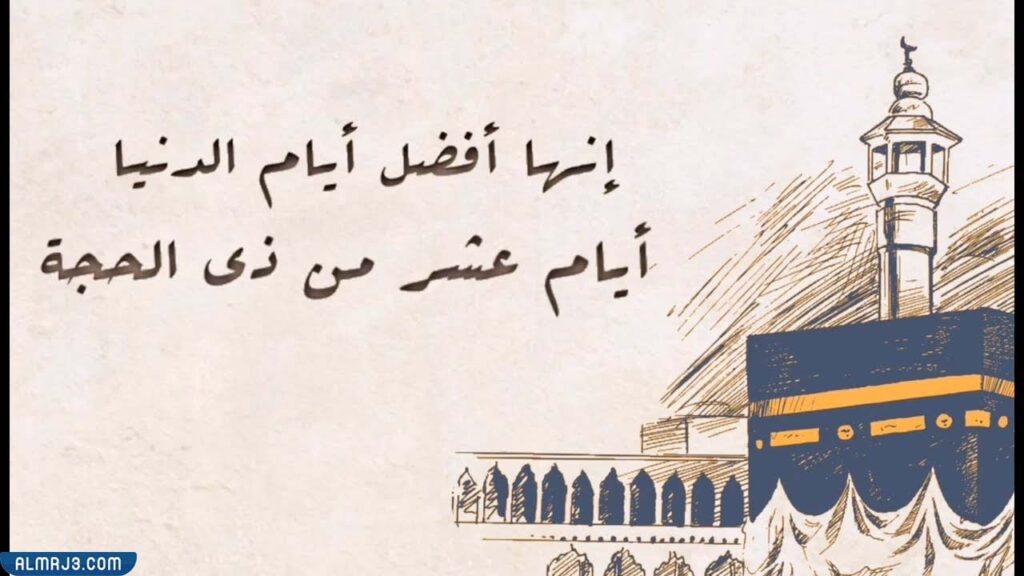 إنها أفضل أيام الدنيا
أيام عشر من ذى الحجة
ALMRJ3.COM